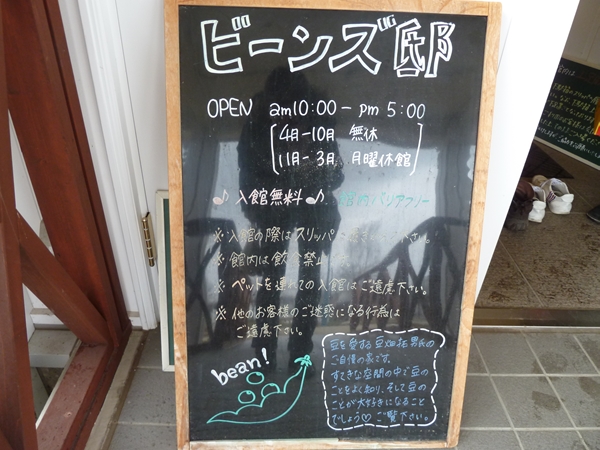 ビーンズ邸
OPEN am10:00 - pm 5:00
4月-10月 無休
11月-3月 月曜休館
♪入館無料♪ 館内バリアフリー
※入館の際はスリッパ
※館内は飲食禁止
※ペットを連れての入館はご遠慮下さい。
※他のお客様のご迷惑になる行為は
ご遠慮下さい。
bean!
豆を愛する豆畑
ご自慢の家です。
すてきな空間の中で豆の
ことをよく知り、そして豆の
ことが大好きになること
でしょう♡ ご覧下さい。